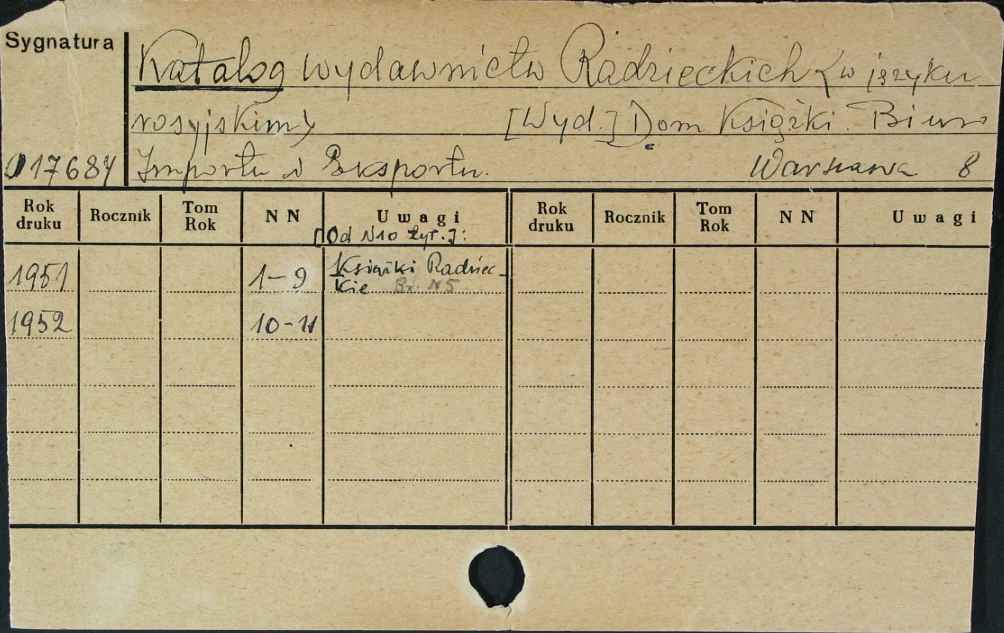 Sygnatura
Katalog wydawnictw Radzieckich (w języku
rosyjskim) [Wyd.] Dom Książki. Biuro
017684 Importu i Eksportu. Warszawa 8
Rok druku Rocznik Tom Rok NN Uwagi Rok druku Rocznik Tom Rok NN Uwagi
[Od N10 tyt.]:
1951 1-9 Książki Radziec-
kie Br. N5
1952 10-11